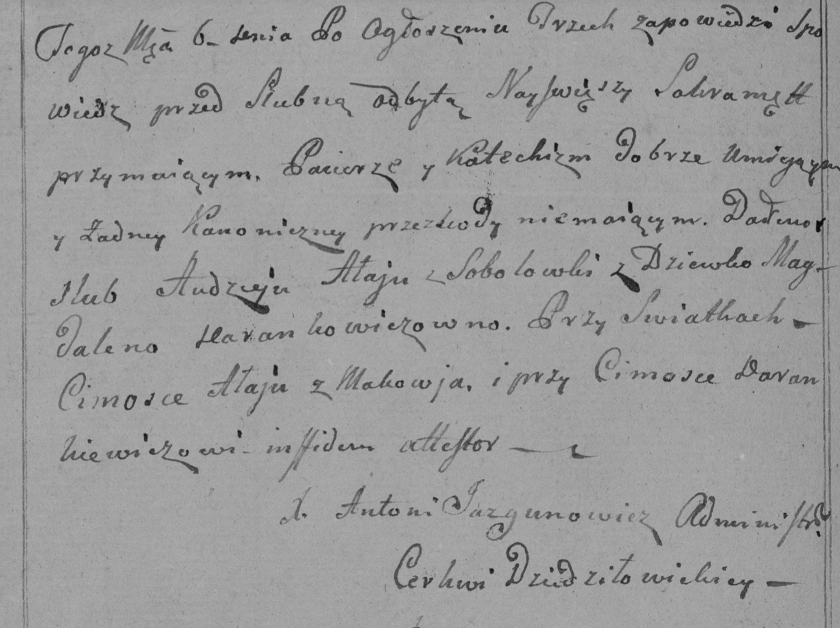 Tegoz Mçã 6- dnia Po Ogłoszeniu Trzech zapowiedzi Spo
wiedz przed Slubną odbytą Nayswięszy Sakramętt
przymaiącym. Pacierze y Katechizm dobrze Umieiącym
y Żadney Kanoniczney przeszkody niemaiącym. Dałem
slub Andzieju Ataju z Sobolowki z Dziewko Mag-
daleno Daran kowiczowno. Przy Swiatkach -
Cimosce Ataju z Makowja, i przy Cimosce Daran
kiewiczowi - in ffidem attestor —
X. Antoni Jazgunowicz Administr:
Cerkwi Dziedziłowickiey —